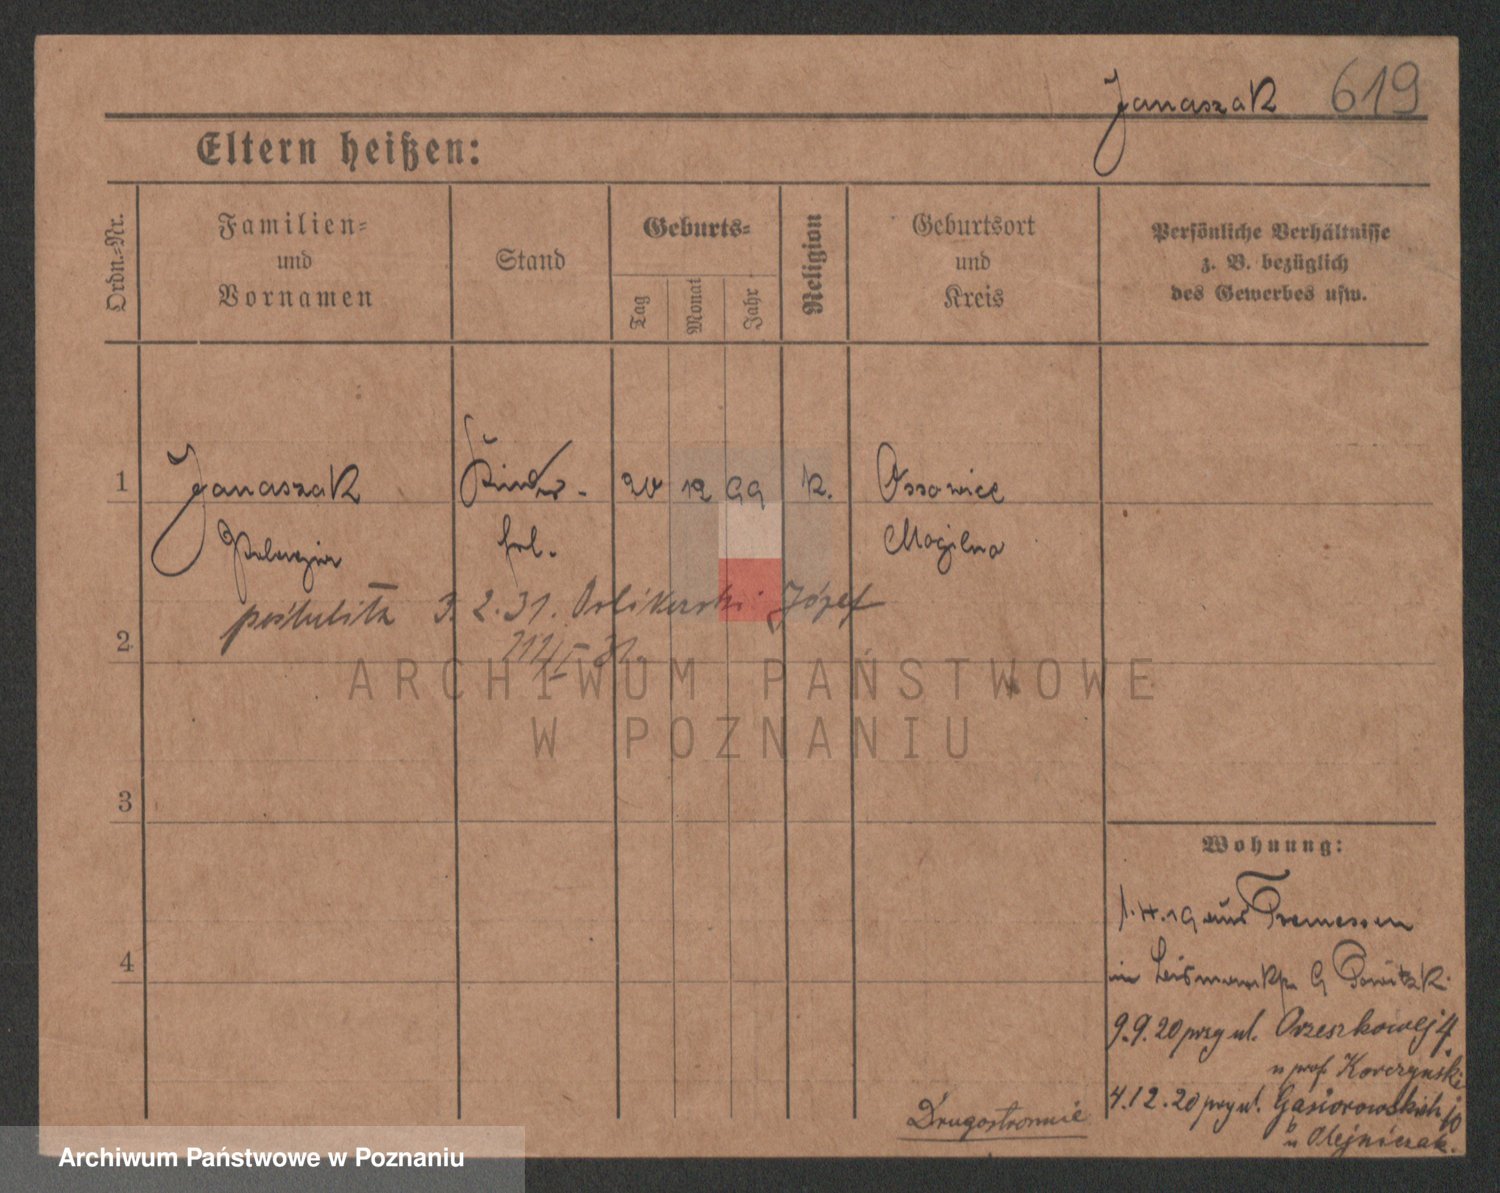 Janaszak 619
Eltern heißen:
Ordn.-Nr.
Familien-
und
Vornamen
Stand
Geburts-
Tag
Monat
Jahr
Religion
Geburtsort
und
Kreis
Persönliche Verhältnisse
z. B. bezüglich
des Gewerbes usw.
1 Janaszak Kinder- 20 12 99 k. Ossowice
Pelagia frl. Mogilno
3. 2. 31. Józef
2
ARCHIWUM PAŃSTWOWE
W POZNANIU
3
Wohnung:
1.4.19 aus Tremessen
4
9.9.20 przy ul. Orzeszkowej 4
u prof. Korczyński
4.12.20 przy ul. Gąsiorowskich
u Olejniczak.
Drugostronnie
Archiwum Państwowe w Poznaniu